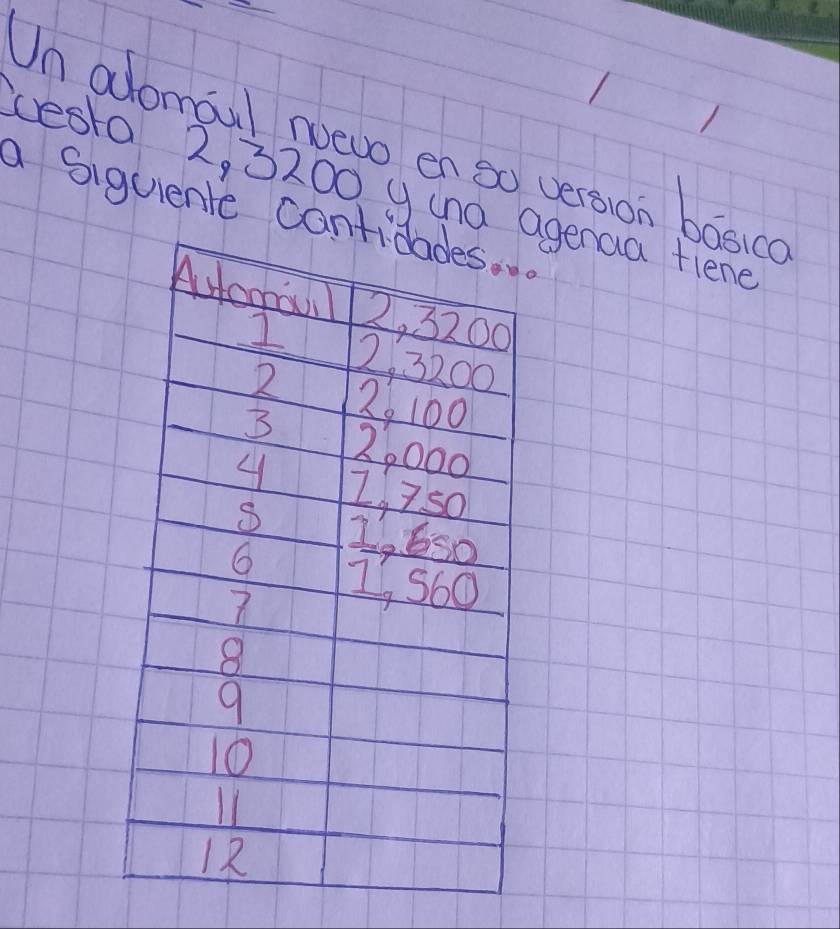 Un automóvil nuevo en so versión básica
cuesta 2,3200 y una agencia tiene
a siguiente cantidades...
Automóvil 2,3200
1 2,3200
2 2,100
3 2,000
4 1,750
5 1,650
6 1,560
7
8
9
10
11
12